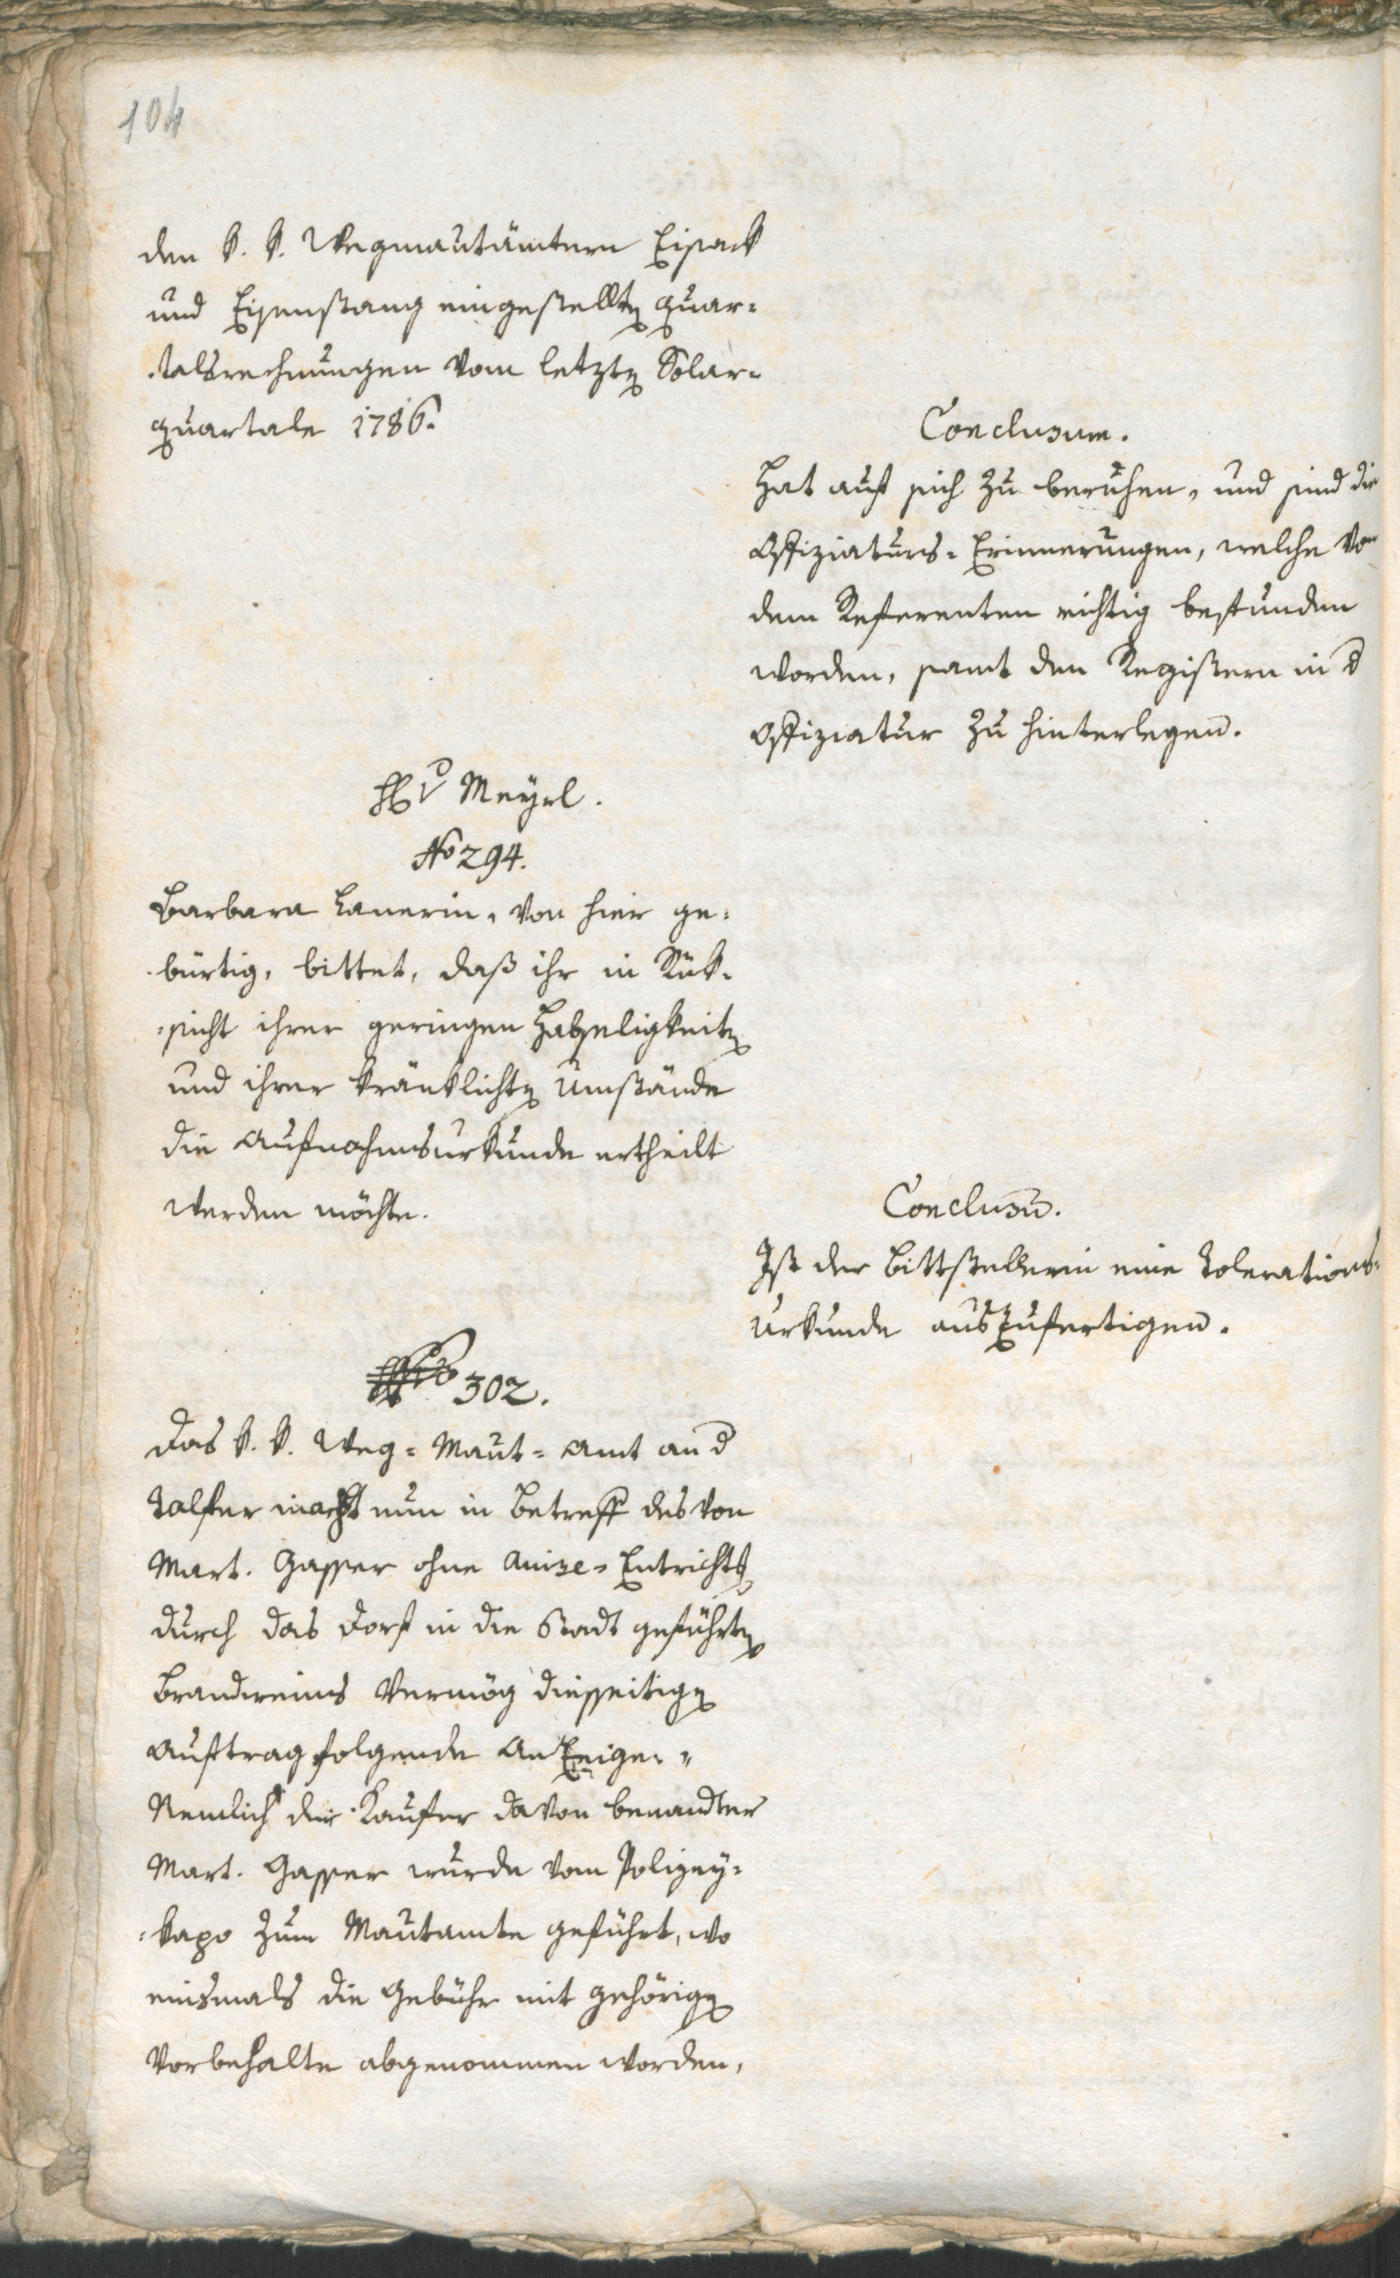 104
den k. k. Wegmautämtern Eisack
und Eisenstang eingestellten quar=
talsrechnungen vom letzten Solar=
quartale 1786.
Conclusum.
Hat auf sich zu beruhen, und sind die
Offiziaturs= Erinnerungen, welche von
dem Referenten richtig befunden
worden, samt den Registern in d
Offiziatur zu hinterlegen.
H v Meÿrl.
No 294.
Barbara Lanerin, von hier ge=
bürtig, bittet, daß ihr in Rük=
=sicht ihrer geringen Habseligkeiten
und ihrer kränklichten Umstände
die Aufnahmsurkunde ertheilt
werden möchte.
Conclusum.
Ist der Bittstellerin eine Tolerations=
Urkunde auszufertigen.
302.
Das k. k. Weg= Maut= Amt an d
Talfer macht nun in Betreff des von
Mart. Gasser ohne Avise= Entrichtg
durch das Dorf in die Stadt geführten
Brandweins vermög diesseitigen
Auftrag folgende Anzeige. "
Nemlich der Kaufer davon benandter
Mart. Gasser wurde vom Polizey=
=kapo zum Mautamte geführt, wo
einsmals die Gebühr mit gehörigen
Vorbehalte abgenommen worden,